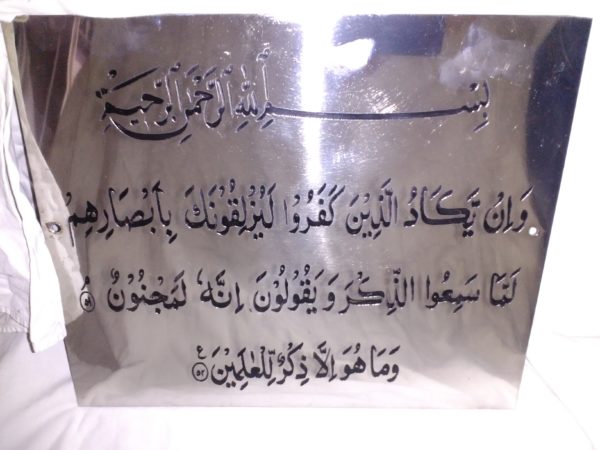 بِسْمِ اللهِ الرَّحْمٰنِ الرَّحِيْمِ
وَاِنْ يَّكَادُ الَّذِيْنَ كَفَرُوْا لَيُزْلِقُوْنَكَ بِاَبْصَارِهِمْ
لَمَّا سَمِعُوا الذِّكْرَ وَيَقُوْلُوْنَ اِنَّهٗ لَمَجْنُوْنٌ ۘ ۝۵۱
وَمَا هُوَ اِلَّا ذِكْرٌ لِّلْعٰلَمِيْنَ ۝۵۲ ع